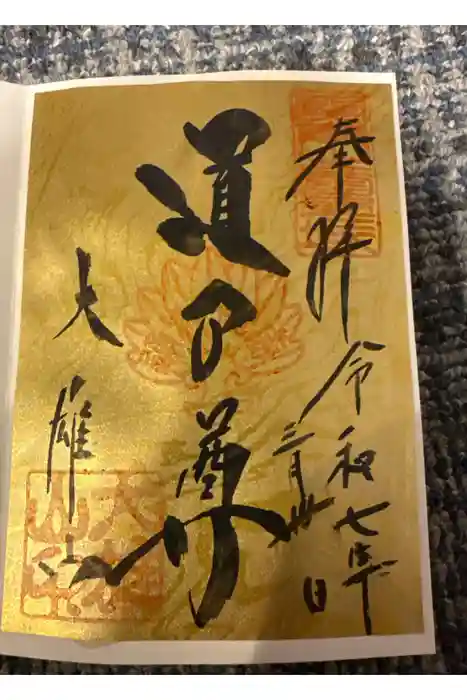 奉拝
令和七年
三月卅日
道了尊
大雄山